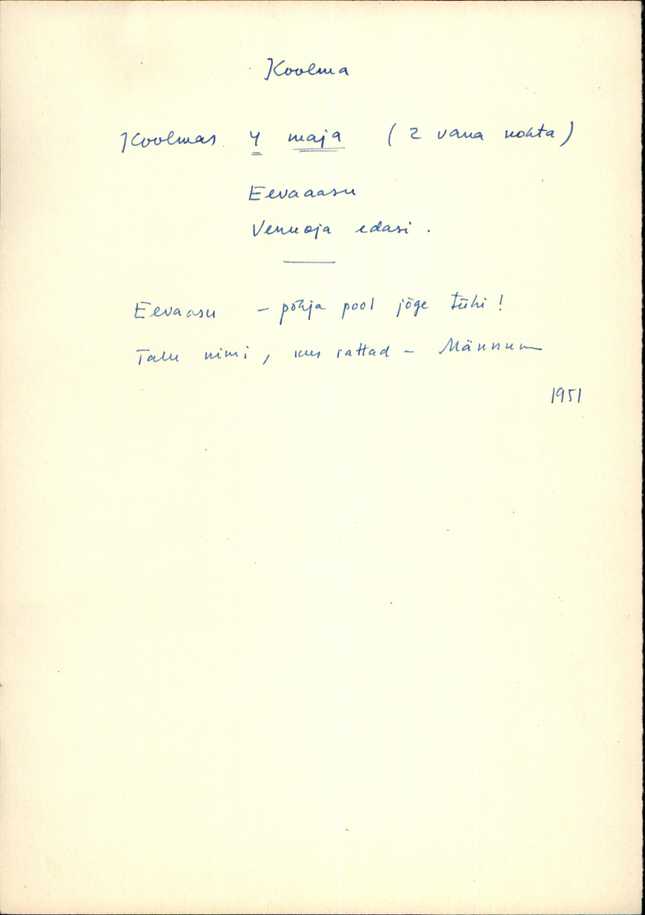 Koolma
Koolmas 4 maja (2 vana kohta)
Eevaaasu
Vennoja edasi.
Eevaasu – põhja pool jõge tühi!
Talu nimi, kus rattad –
1951